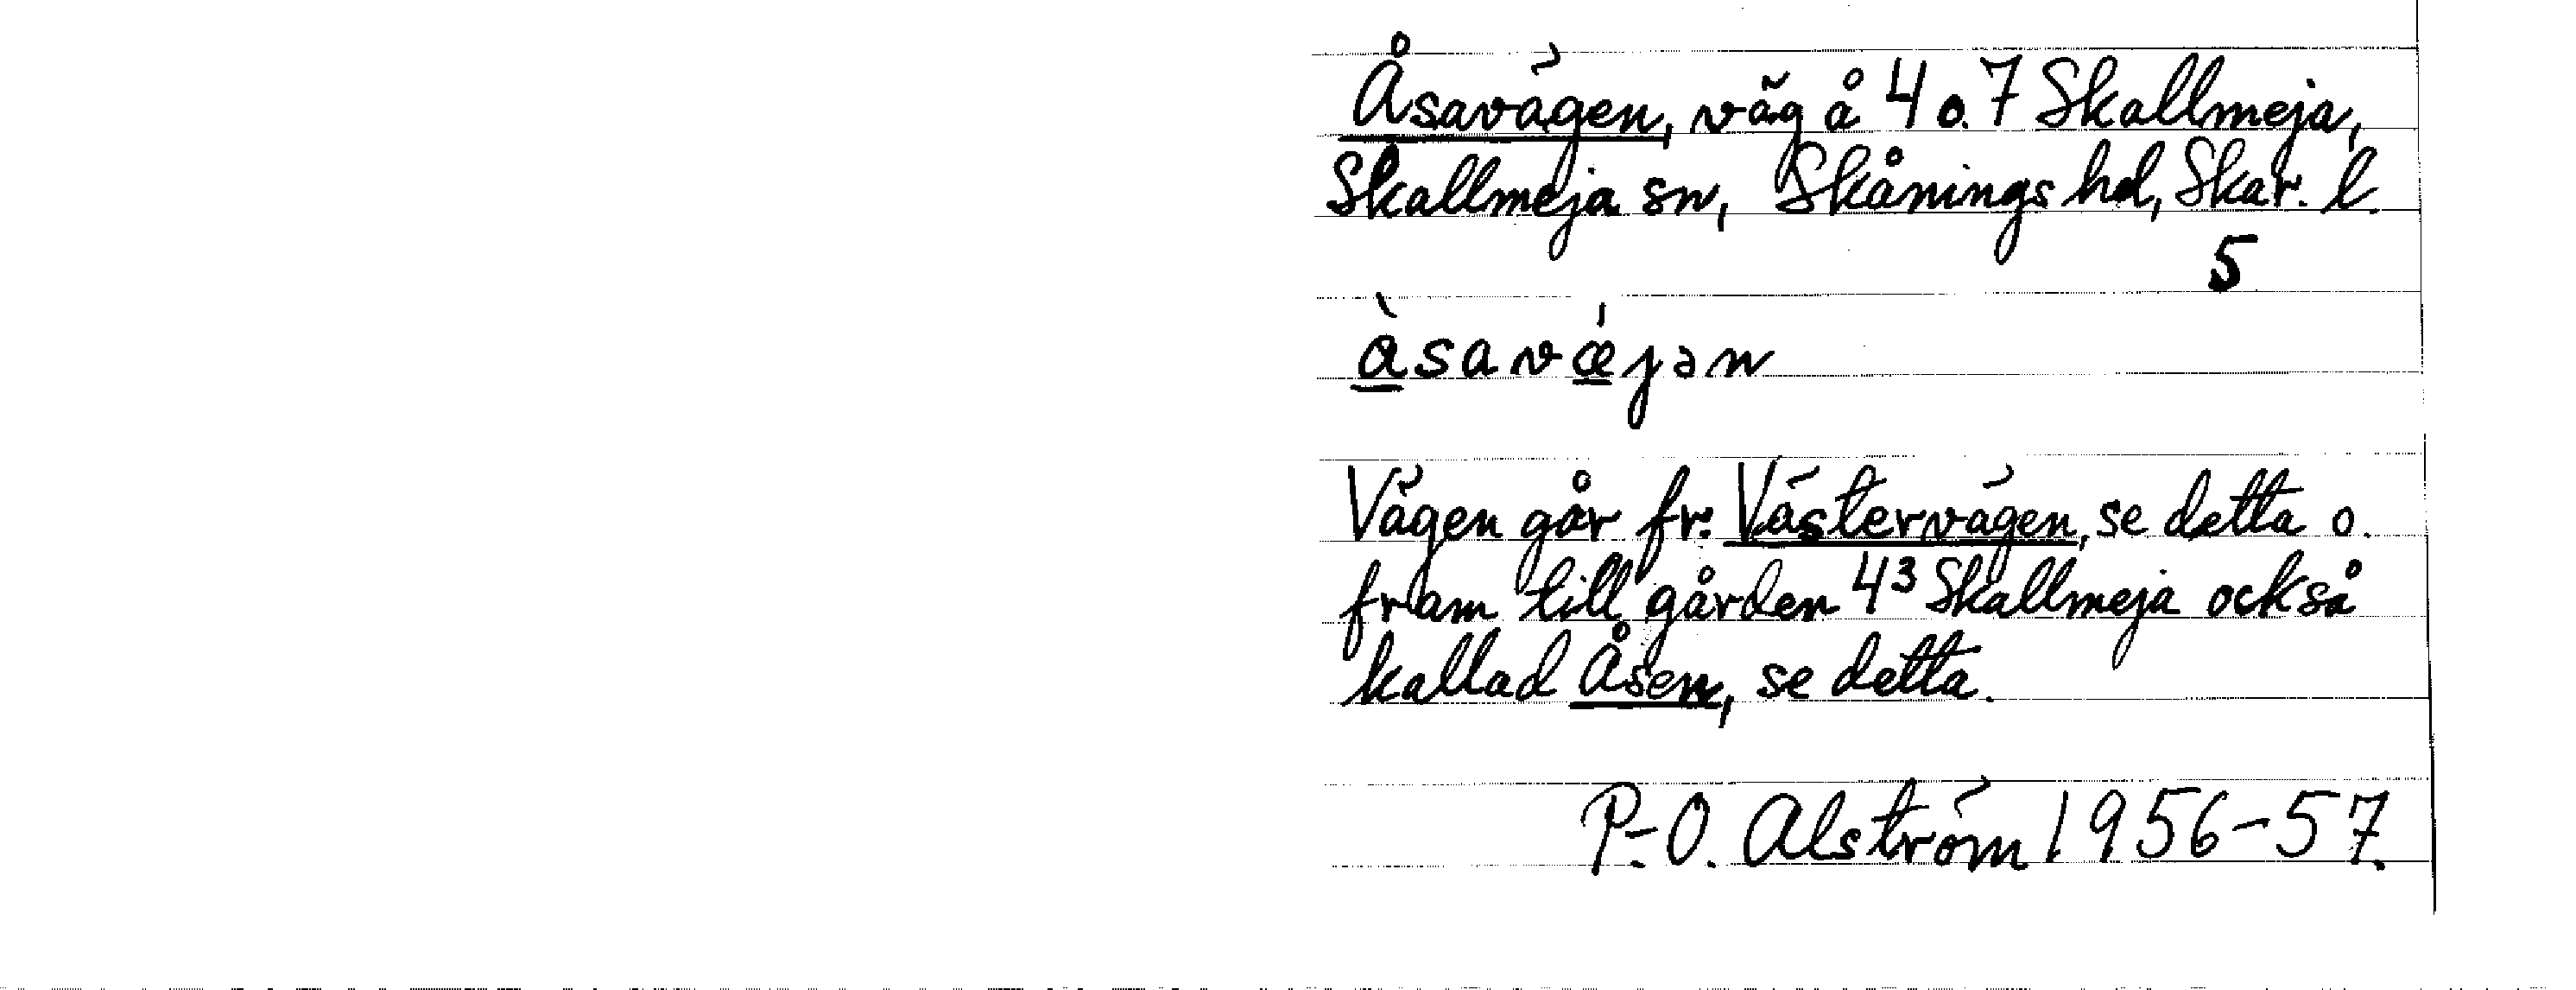 Åsavägen, väg å 4 o. 7 Skallmeja,
Skallmeja sn, Skånings hd, Skar. l.
5
à̲savǽ̲jən
Vägen går fr. Västervägen, se detta o.
fram till gården 4³ Skallmeja också
kallad Åsen, se detta.
P.-O. Alström 1956-57.